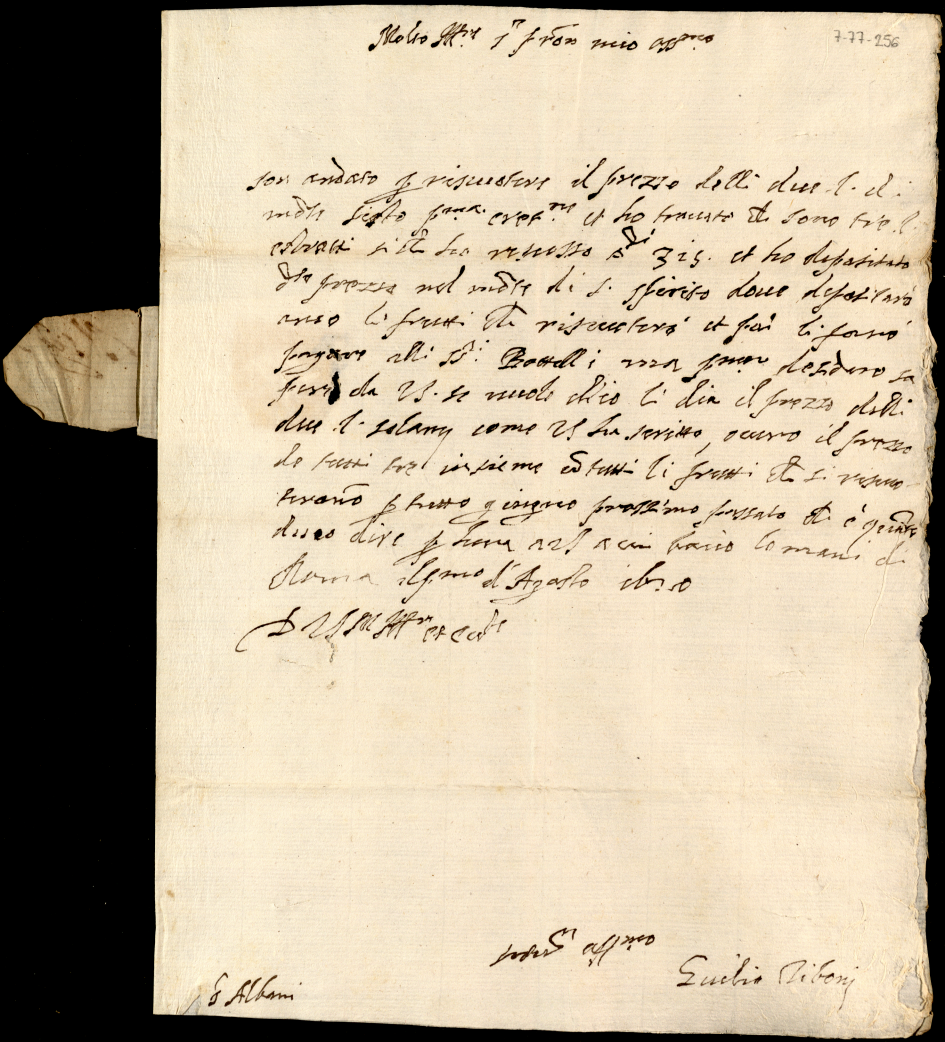 7-77-256
Molto Ill.re S.r p.ron mio oss.mo
son andato p riscuotere il prezzo delli due l. di
monte sisto p.ma eret.ne et ho trovato che sono tre l.
estratti si che ho riscosso 315. et ho depositato
q.sto prezzo nel monte di s. spirito dove depositarò
anco li frutti che riscuoterò et poi li farrò
pagare alli ss.ri Bottelli ma desidero sa
pere da VS. se vuole ch'io li dia il prezzo delli
due l. solamj come VS ha scritto, overo il prezzo
de tutti tre insieme con tutti li frutti che si riscuo-
teranno p tutto giugno prossimo passato che è quanto
devo dire p hora a VS a cui bacio le mani di
Roma il p.mo d'Agosto
D VS M Ill.re et
ser.re aff.mo
Giulio Tiboni
S Albani